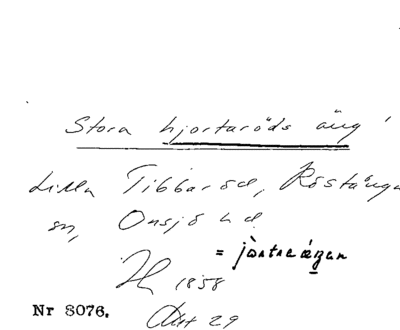 Stora hjortaröds äng
Lilla Tibbaröd, Röstånga
sn, Onsjö hd
= jòrtaröᶇan
1858
Akt 29
Nr 8076.